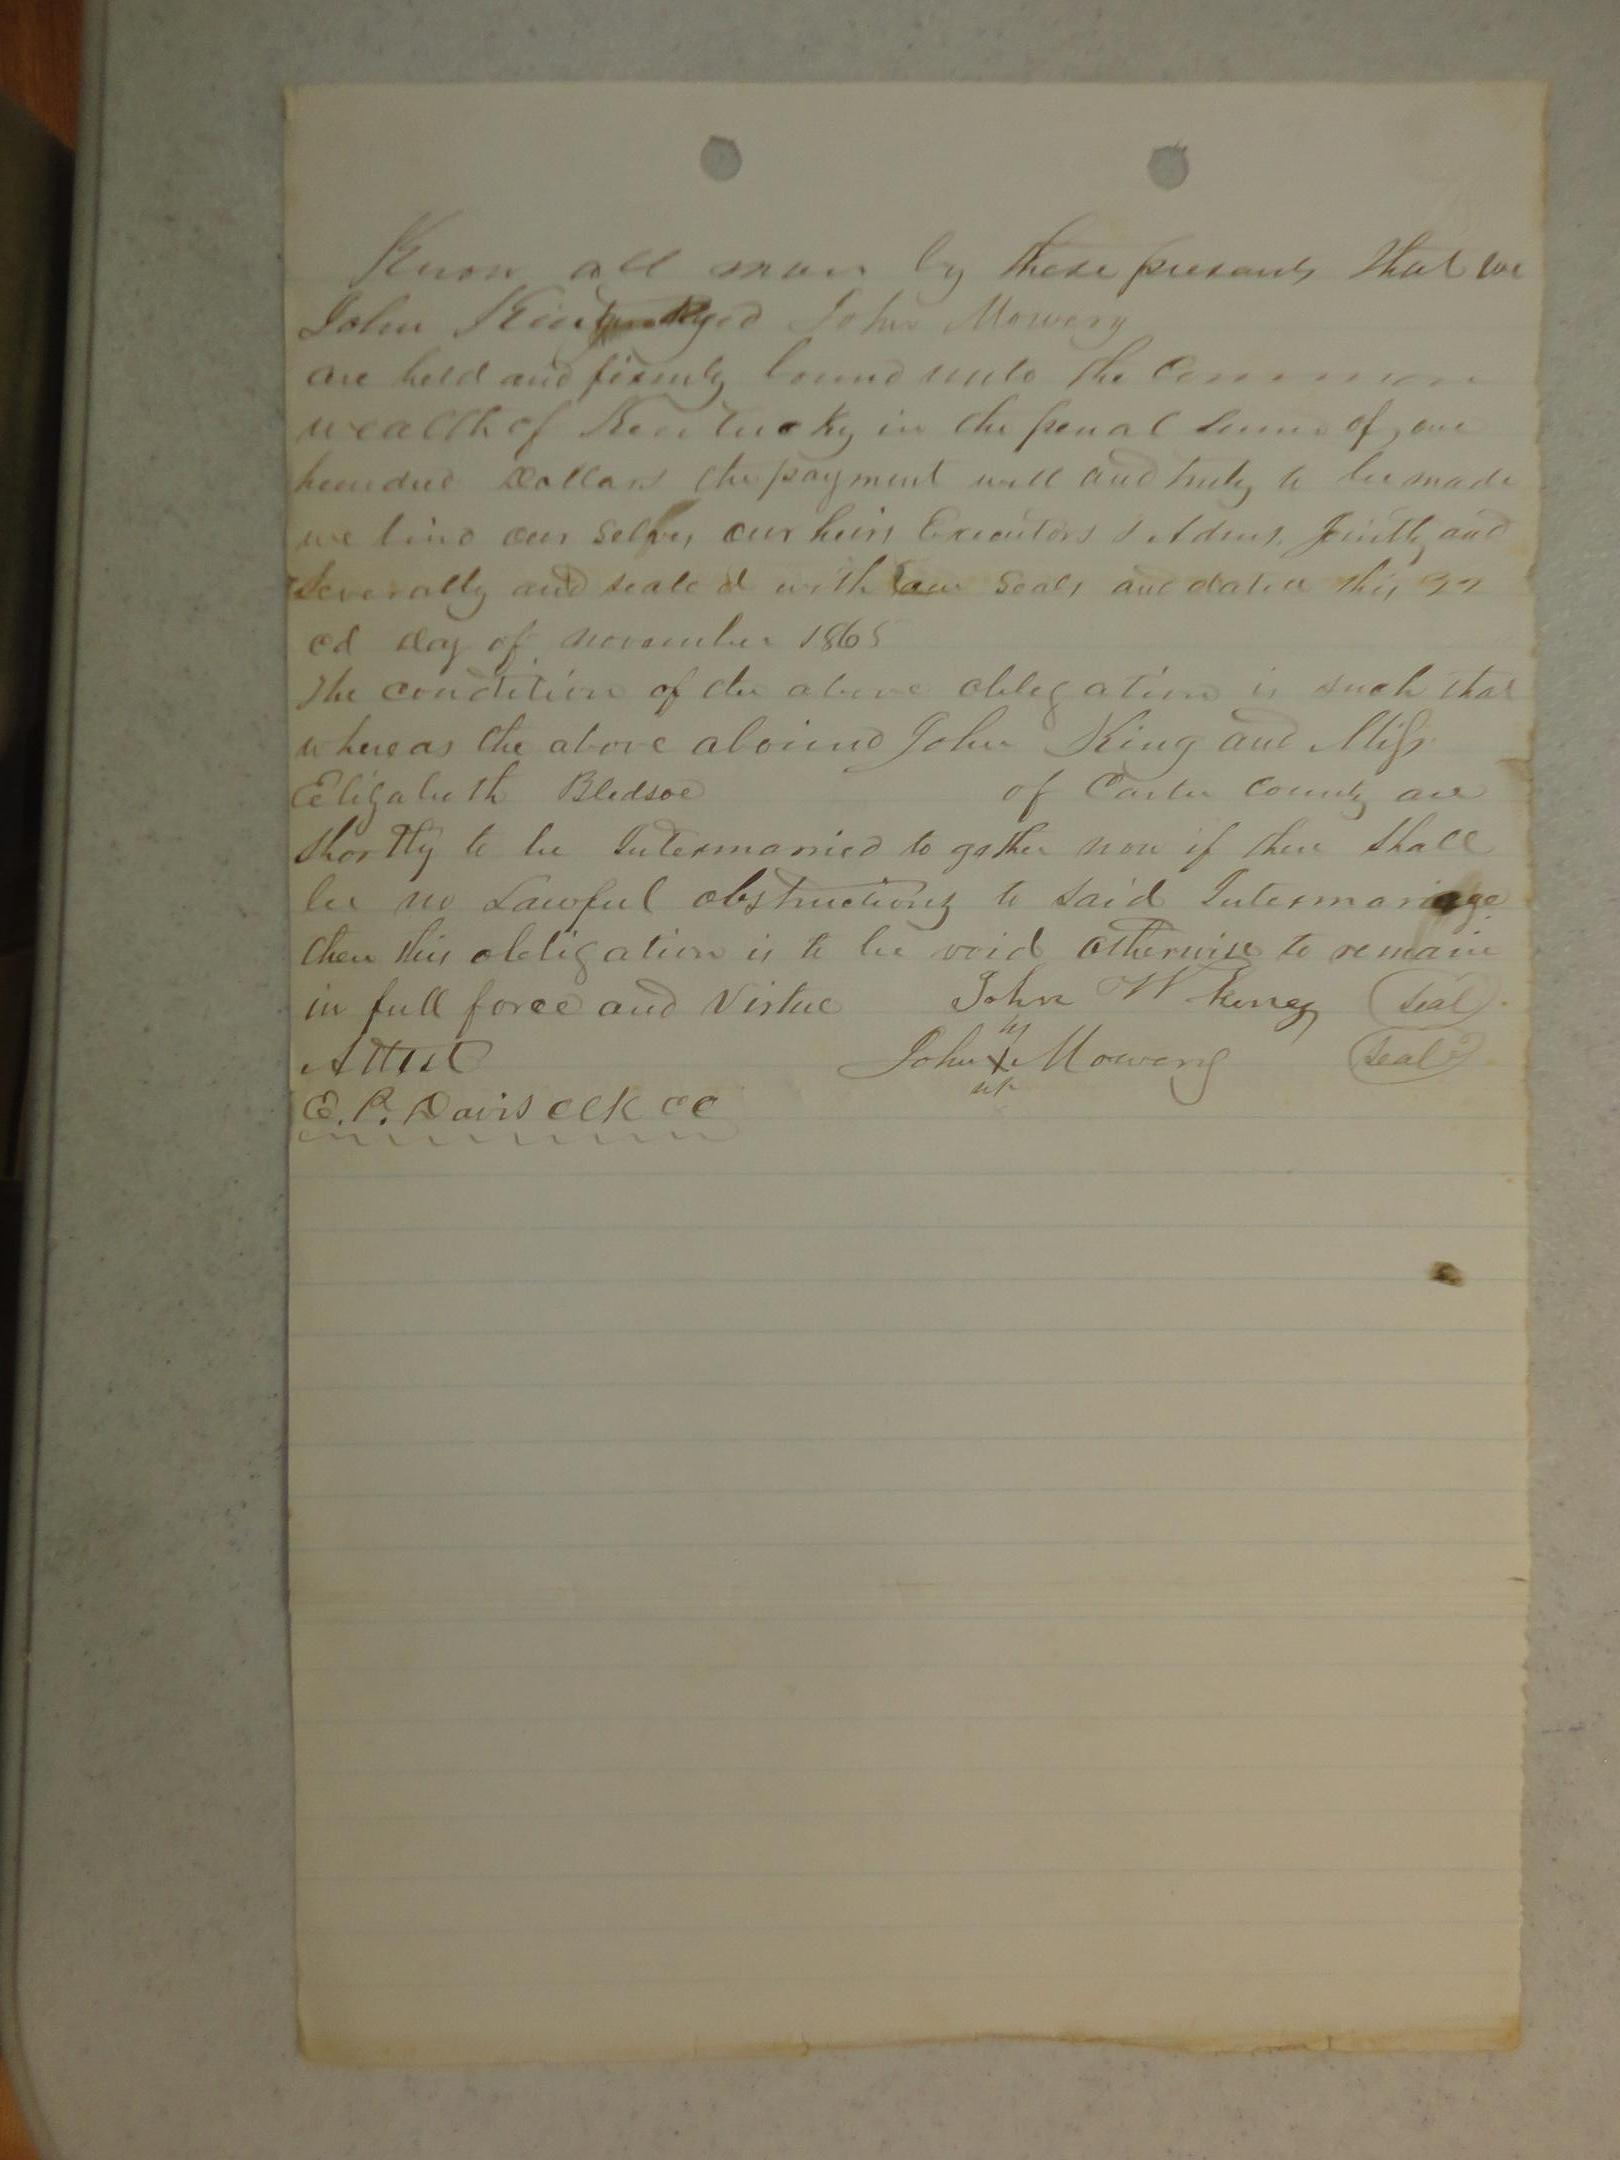 Know all men by these presents that we
John King and John Mowery
are held and firmly bound unto the Common
wealth of Kentucky in the penal sum of one
hundred Dollars the payment well and truly to be made
we bind our selves our heirs Executors & Adms. Jointly and
Severally and sealed with our Seals and dated this 22
cd day of november 1865
The condition of the above obligation is such that
whereas the above abound John King and Miss
Elizabeth Bledsoe of Carter County are
Shortly to be Intermarried to gather now if there Shall
be no Lawful obstructions to Said Intermariage
then this obligation is to be void otherwise to remain
in full force and Virtue John W King (Seal)
Attest John X Mowery (Seal)
E. P. Davis clk CC